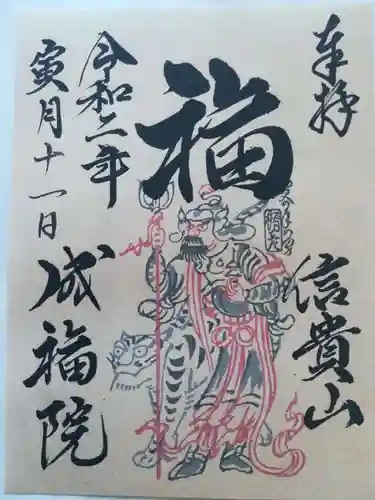 奉拝
信貴山
福
令和二年
寅月十一日
成福院